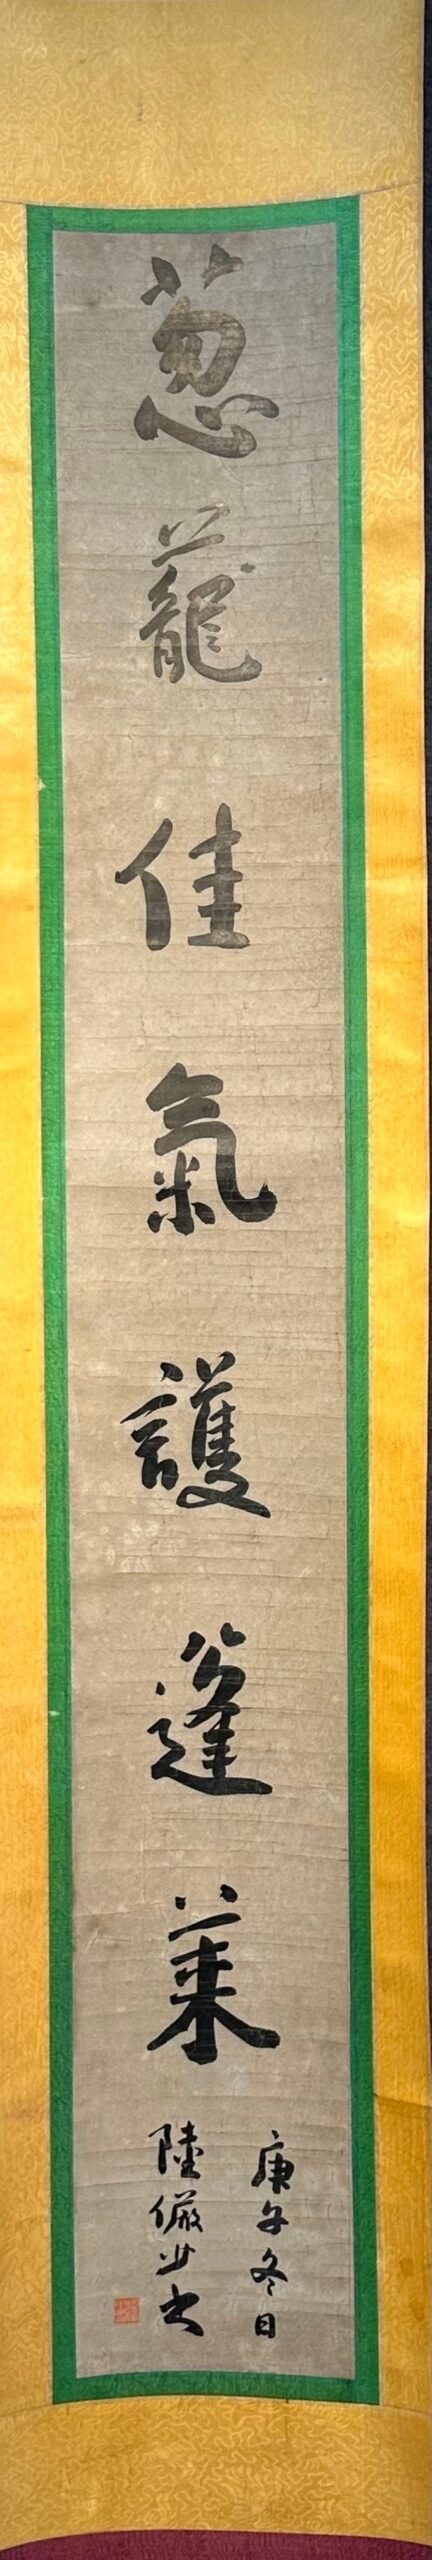 葱蘢佳氣護蓬萊
庚午冬日
陸儼少書